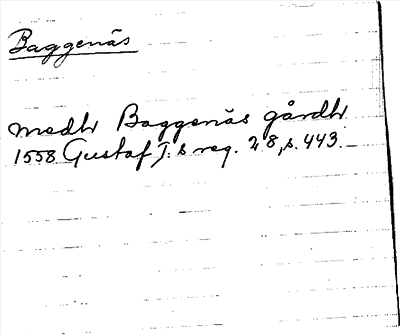 Baggenäs
medh Baggenäs gårdh
1558 Gustaf I:s reg. 28, s. 443.